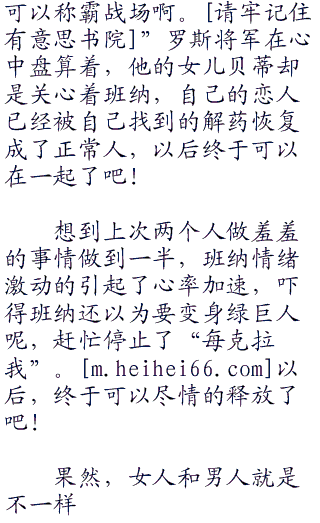 可以称霸战场啊。[请牢记住
有意思书院]”罗斯将军在心
中盘算着，他的女儿贝蒂却
是关心着班纳，自己的恋人
已经被自己找到的解药恢复
成了正常人，以后终于可以
在一起了吧！
想到上次两个人做羞羞
的事情做到一半，班纳情绪
激动的引起了心率加速，吓
得班纳还以为要变身绿巨人
呢，赶忙停止了“每克拉
我”。[m.heihei66.com]以
后，终于可以尽情的释放了
吧！
果然，女人和男人就是
不一样